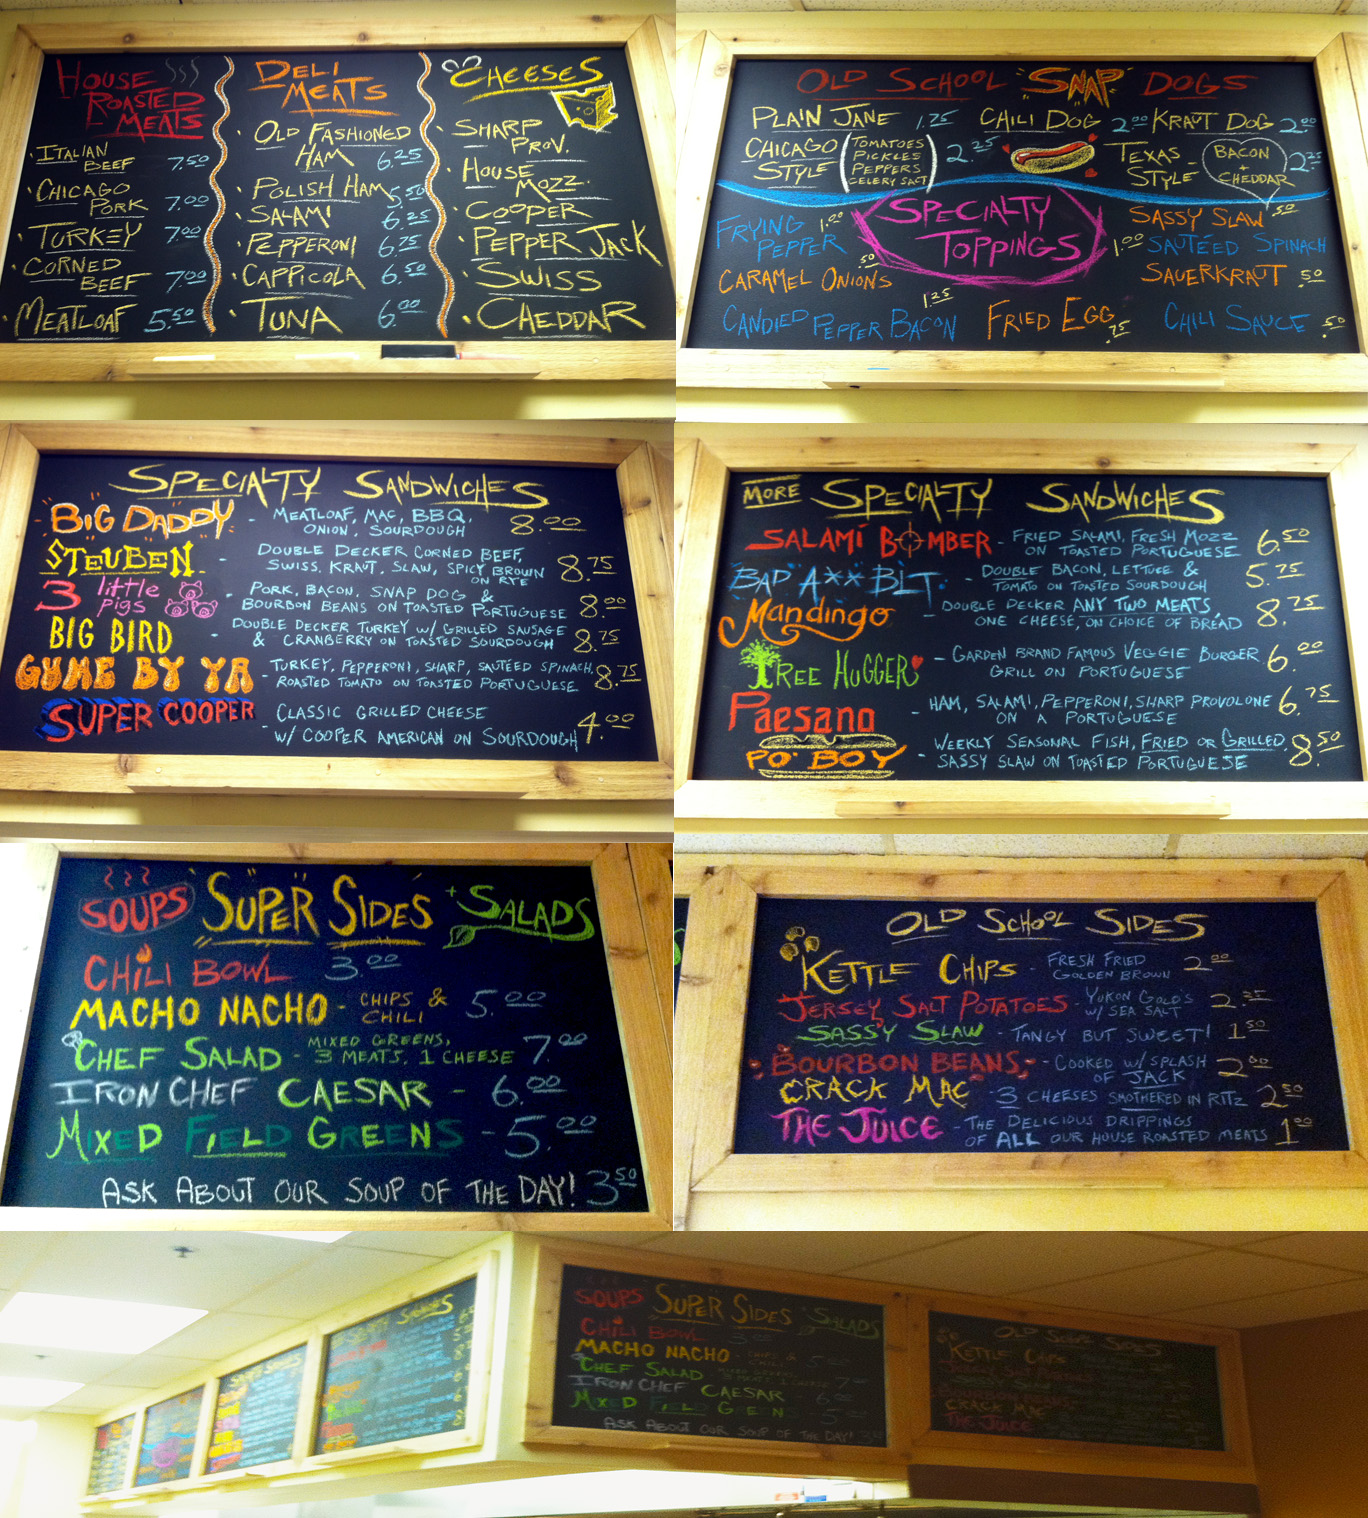 HOUSE
ROASTED
MEATS
ITALIAN
BEEF 7.50
CHICAGO
PORK 7.00
TURKEY 7.00
CORNED
BEEF 7.00
MEATLOAF 5.50
DELI
MEATS
OLD FASHIONED
HAM 6.25
POLISH HAM 5.50
SALAMI 6.25
PEPPERONI 6.25
CAPPICOLA 6.50
TUNA 6.00
CHEESES
SHARP
PROV.
HOUSE
MOZZ.
COOPER
PEPPER JACK
SWISS
CHEDDAR
OLD SCHOOL "SNAP" DOGS
PLAIN JANE 1.25
CHILI DOG 2.00
KRAUT DOG 2.00
CHICAGO
STYLE
TOMATOES
PICKLES
PEPPERS
CELERY SALT
2.25
TEXAS
STYLE -
BACON
CHEDDAR
2.25
SPECIALTY
TOPPINGS
FRYING
PEPPER 1.00
CARAMEL ONIONS .50
CANDIED PEPPER BACON 1.25
FRIED EGG .75
SASSY SLAW .50
1.00 SAUTÉED SPINACH
SAUERKRAUT .50
CHILI SAUCE .50
SPECIALTY SANDWICHES
BIG DADDY - MEATLOAF, MAC, BBQ,
ONION, SOURDOUGH 8.00
STEUBEN - DOUBLE DECKER CORNED BEEF,
SWISS, KRAUT, SLAW, SPICY BROWN
ON RYE 8.75
3 little
pigs - PORK, BACON, SNAP DOG &
BOURBON BEANS ON TOASTED PORTUGUESE 8.00
BIG BIRD - DOUBLE DECKER TURKEY W/ GRILLED SAUSAGE
& CRANBERRY ON TOASTED SOURDOUGH 8.75
GUME BY YA - TURKEY, PEPPERONI, SHARP, SAUTÉED SPINACH,
ROASTED TOMATO ON TOASTED PORTUGUESE 8.75
SUPER COOPER - CLASSIC GRILLED CHEESE
W/ COOPER AMERICAN ON SOURDOUGH 4.00
MORE SPECIALTY SANDWICHES
SALAMI BOMBER - FRIED SALAMI, FRESH MOZZ
ON TOASTED PORTUGUESE 6.50
BAD A** BLT - DOUBLE BACON, LETTUCE &
TOMATO ON TOASTED SOURDOUGH 5.75
Mandingo - DOUBLE DECKER ANY TWO MEATS,
ONE CHEESE, ON CHOICE OF BREAD 8.75
TREE HUGGER - GARDEN BRAND FAMOUS VEGGIE BURGER
GRILL ON PORTUGUESE 6.00
Paesano - HAM, SALAMI, PEPPERONI, SHARP PROVOLONE
ON A PORTUGUESE 6.75
PO' BOY - WEEKLY SEASONAL FISH, FRIED OR GRILLED,
SASSY SLAW ON TOASTED PORTUGUESE 8.50
SOUPS "SUPER SIDES" + SALADS
CHILI BOWL 3.00
MACHO NACHO - CHIPS &
CHILI 5.00
CHEF SALAD - MIXED GREENS,
3 MEATS, 1 CHEESE 7.00
IRON CHEF CAESAR - 6.00
MIXED FIELD GREENS - 5.00
ASK ABOUT OUR SOUP OF THE DAY! 3.50
OLD SCHOOL SIDES
KETTLE CHIPS - FRESH FRIED
GOLDEN BROWN 2.00
JERSEY SALT POTATOES - YUKON GOLD'S
W/ SEA SALT 2.25
SASSY SLAW - TANGY BUT SWEET! 1.50
BOURBON BEANS - COOKED W/ SPLASH
OF JACK 2.00
CRACK MAC - 3 CHEESES SMOTHERED IN RITZ 2.50
THE JUICE - THE DELICIOUS DRIPPINGS
OF ALL OUR HOUSE ROASTED MEATS 1.00
SOUPS "SUPER SIDES" SALADS
CHILI BOWL
MACHO NACHO - CHIPS &
CHILI
CHEF SALAD
IRON CHEF CAESAR
MIXED FIELD GREEN
ASK ABOUT OUR SOUP OF THE DAY!
OLD SCHOOL SIDES
KETTLE CHIPS
CRACK MAC
THE JUICE